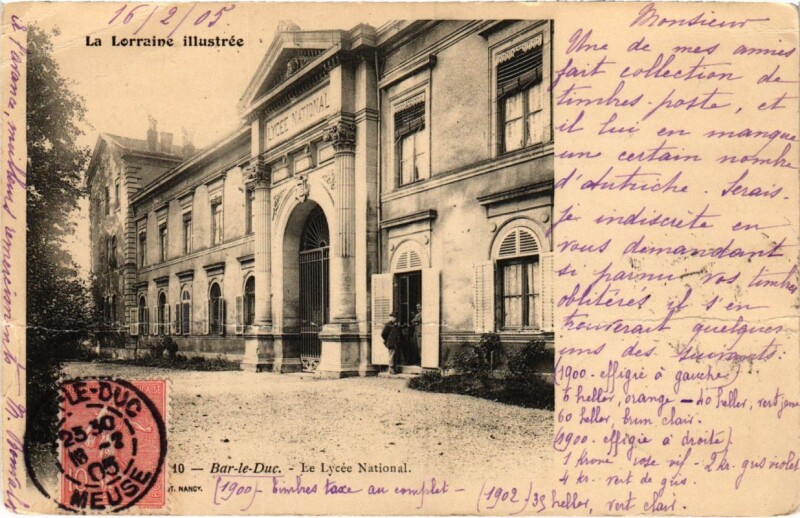 16/2/05
La Lorraine illustrée
LYCÉE NATIONAL
Monsieur
Une de mes amies
fait collection de
timbres-poste, et
il lui en manque
un certain nombre
d'Autriche. Serais-
je indiscrète en
vous demandant
si parmi vos timbres
oblitérés il s'en
trouverait quelques
uns des suivants:
(1900 - effigie à gauche)
6 heller, orange - 40 heller, vert jaune
60 heller, brun clair.
(1900 - effigie à droite)
1 Krone rose vif - 2 kr. gris violet
4 kr. vert de gris.
(1900) - timbres taxe au complet - (1902) 35 heller, vert clair.
10 — Bar-le-Duc. - Le Lycée National.
T. NANCY.
LE-DUC
23 30
16 -2
05
MEUSE
à l'avance, mille remerciements